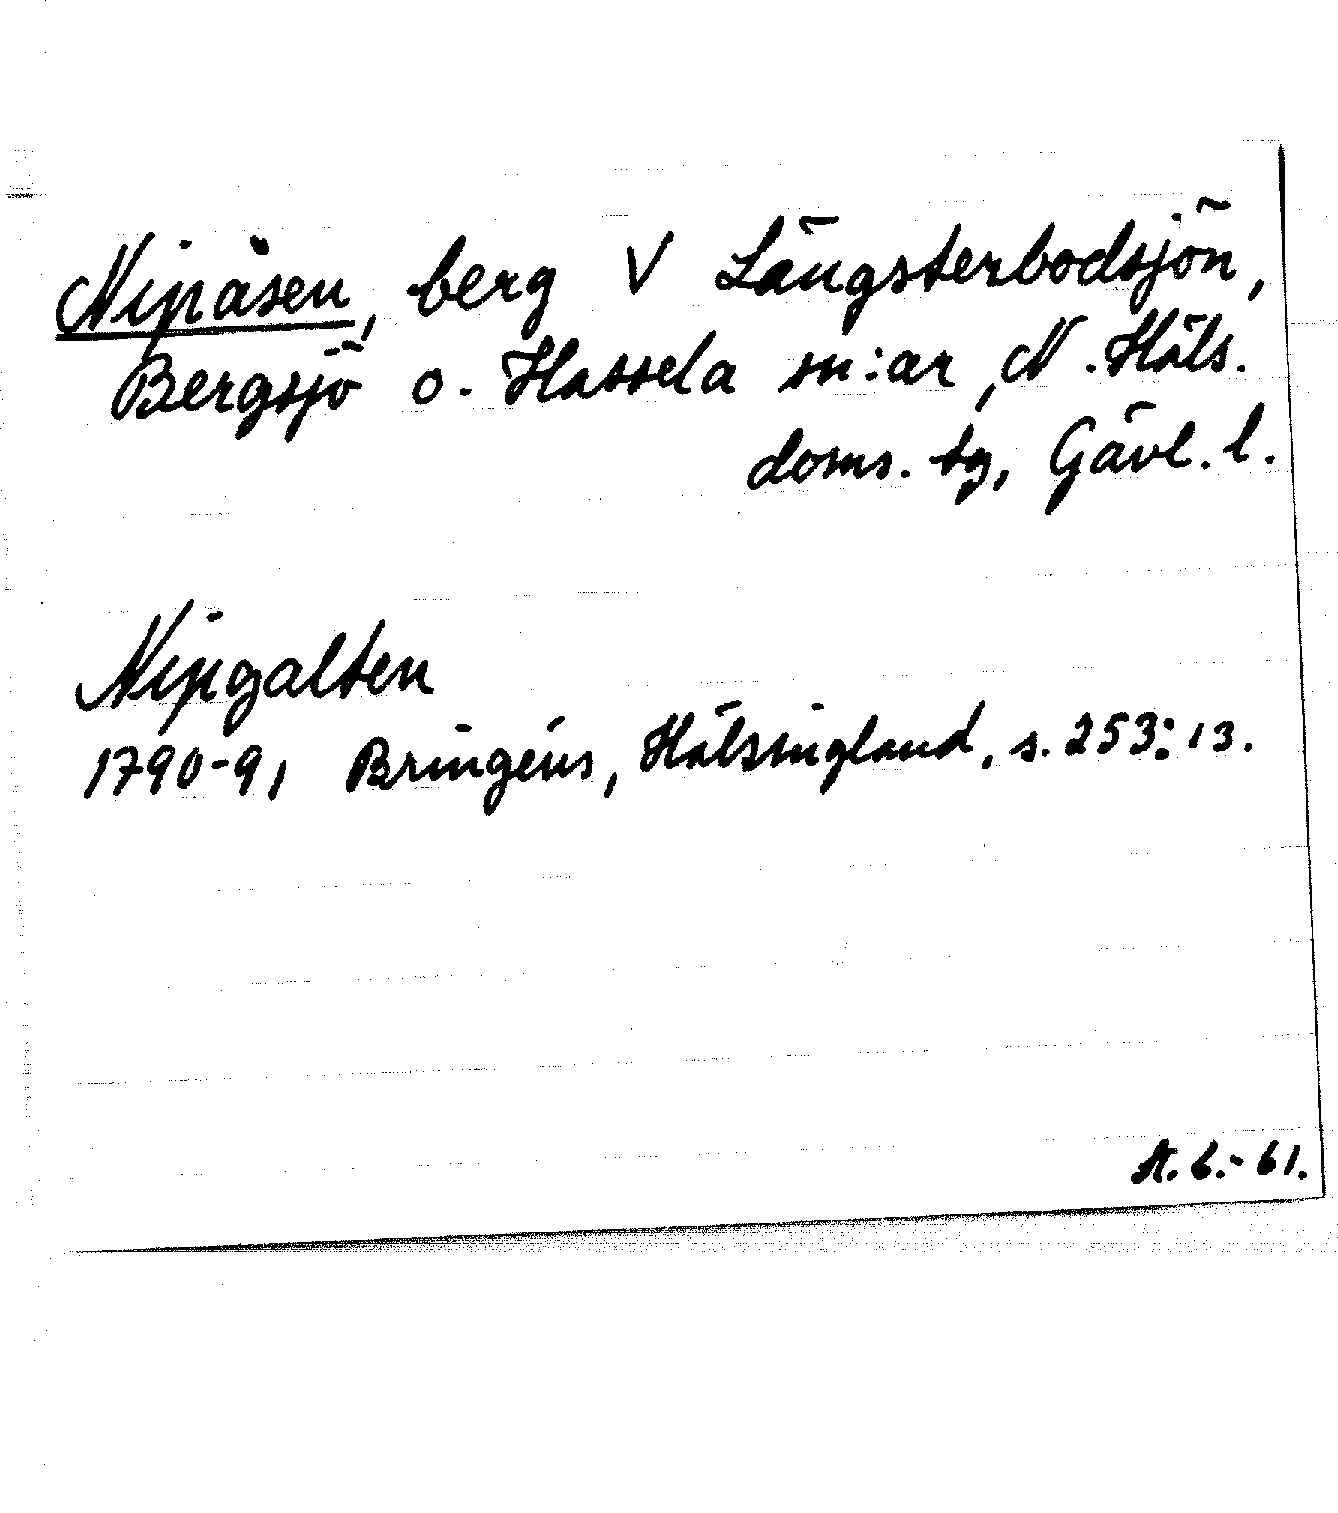 Nipåsen, berg V Längsterbodsjön,
Bergsjö o. Hassela sn:ar, N. Häls.
doms. tg, Gävl. l.
Nipgalten
1790-91 Bringéus, Hälsingland, s. 253:13.
A. B.-61.